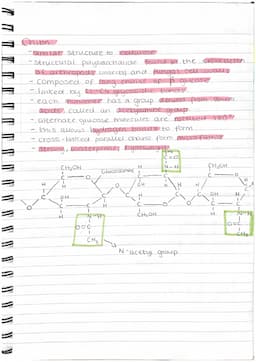 Chitin
- similar structure to cellulose
- Structural polysaccharide found in the exoskeleton
of arthropods (insects) and fungal cell walls
- composed of long chains of β glucose
- linked by 1-4 glycosidic bonds
- each monomer has a group derived from amino
acids called an acetylamine group
- alternate glucose molecules are rotated 180°
- this allows hydrogen bonds to form
- cross-linked parallel chains form microfibrils
- strong, waterproof, lightweight
CH₃
C=O
CH₂OH
Glucosamine
N-H
CH₂OH
H
O
OH
H
CH₂OH
N-H
O=C
CH₃
N-H
O=C
N-acetyl group